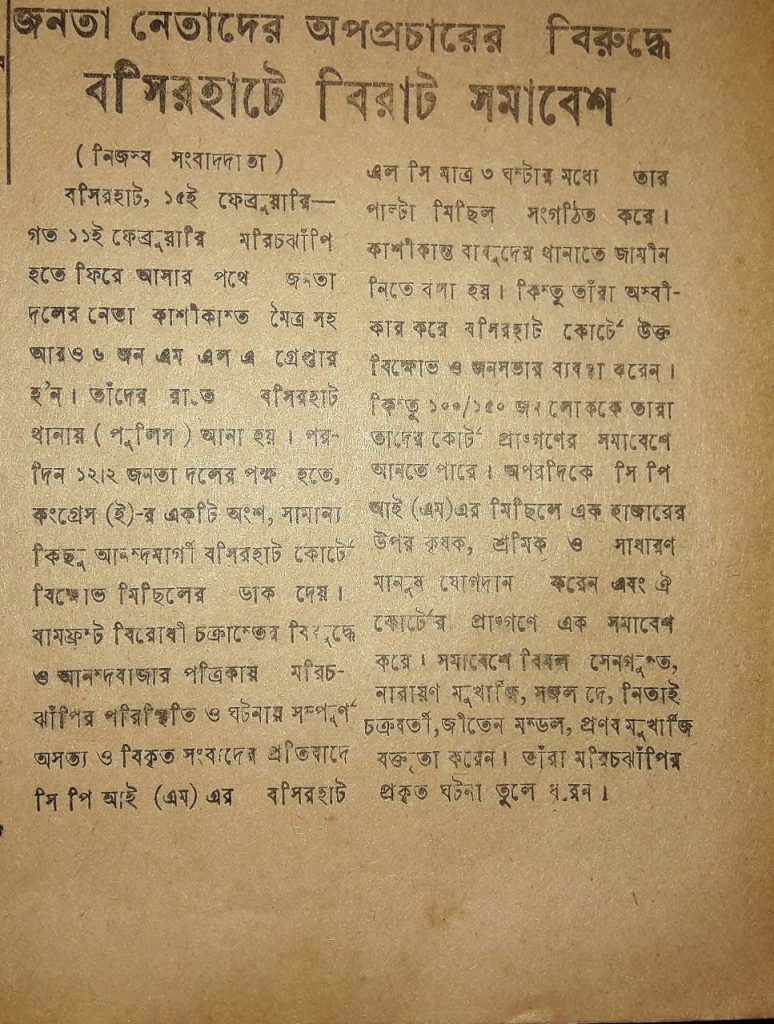 জনতা নেতাদের অপপ্রচারের বিরুদ্ধে
বসিরহাটে বিরাট সমাবেশ
( নিজস্ব সংবাদদাতা )
বসিরহাট, ১৫ই ফেব্রুয়ারি—
গত ১১ই ফেব্রুয়ারি মরিচঝাঁপি
হতে ফিরে আসার পথে জনতা
দলের নেতা কাশীকান্ত মৈত্র সহ
আরও ৬ জন এম এল এ গ্রেপ্তার
হ'ন। তাঁদের রাতে বসিরহাট
থানায় ( পুলিস ) আনা হয়। পর-
দিন ১২।২ জনতা দলের পক্ষ হতে,
কংগ্রেস (ই)-র একটি অংশ, সামান্য
কিছু আনন্দমার্গী বসিরহাট কোর্টে
বিক্ষোভ মিছিলের ডাক দেয়।
বামফ্রন্ট বিরোধী চক্রান্তের বিরুদ্ধে
ও আনন্দবাজার পত্রিকায় মরিচ-
ঝাঁপির পরিস্থিতি ও ঘটনায় সম্পূর্ণ
অসত্য ও বিকৃত সংবাদের প্রতিবাদে
সি পি আই (এম) এর বসিরহাট
এল সি মাত্র ৩ ঘন্টার মধ্যে তার
পাল্টা মিছিল সংগঠিত করে।
কাশীকান্ত বাবুদের থানাতে জামীন
নিতে বলা হয়। কিন্তু তাঁরা অস্বী-
কার করে বসিরহাট কোর্টে উক্ত
বিক্ষোভ ও জনসভার ব্যবস্থা করেন।
কিন্তু ১০০/১৫০ জন লোককে তারা
তাদের কোর্ট প্রাঙ্গণের সমাবেশে
আনতে পারে। অপরদিকে সি পি
আই (এম)এর মিছিলে এক হাজারের
উপর কৃষক, শ্রমিক ও সাধারণ
মানুষ যোগদান করেন এবং ঐ
কোর্টের প্রাঙ্গণে এক সমাবেশ
করে। সমাবেশে বিমল সেনগুপ্ত,
নারায়ণ মুখার্জি, মঙ্গল দে, নিতাই
চক্রবর্তী, জীতেন মন্ডল, প্রণব মুখার্জি
বক্তৃতা করেন। তাঁরা মরিচঝাঁপির
প্রকৃত ঘটনা তুলে ধরেন।